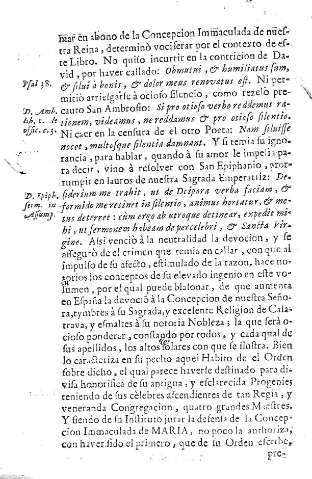 mar en abono de la Concepcion Immaculada de nues-
tra Reina, determinò vociferar por el contexto de es-
te Libro. No quiso incurrir en la contricion de Da-
vid, por haver callado: Obmutui, & humiliatus sum,
Psal 38. & silui à bonis, & dolor meus renovatus est. Ni per-
mitiò arriesgarse à ocioso silencio, como rezelò pre-
D. Amb. cauto San Ambrosio: Si pro otioso verbo reddemus ra-
lib. 1. de tionem, videamus, ne reddamus & pro otioso silentio.
offic. c. 3. Ni caer en la censura de el otro Poeta: Nam siluisse
nocet, multosque silentia damnant. Y si temia su igno-
rancia, para hablar, quando à su amor le impelia pa-
ra decir, vino à resolver con San Epiphanio, pror-
rumpir en lauros de nuestra Sagrada Emperatriz: De-
D. Epiph. siderium me trahit, ut de Deipara verba faciam, &
serm. in formido me retinet in silentio, animus hortatur, & me-
Assump. tus deterret: cùm ergo ab utroque detinear, expedit mi-
hi, ut sermonem habeam de percelebri, & Sancta Vir-
gine. Assi venciò à la neutralidad la devocion, y se
assegurò de el crimen que temia en callar, con que al
impulso de su afecto, estimulado de la razon, hace no-
torios los conceptos de su elevado ingenio en este vo-
lumen, por el qual puede blasonar, de que aumenta
en España la devociò à la Concepcion de nuestra Seño-
ra, tymbres à su Sagrada, y excelente Religion de Cala-
trava, y esmaltes à su notoria Nobleza; la que serà o-
cioso ponderar, constando por todos, y cada qual de
sus apellidos, los altos solares con que se ilustra. Bien
lo caracteriza en su pecho aquel Habito de el Orden
sobre dicho, el qual parece haverse destinado para di-
visa honorifica de su antigua, y esclarecida Progenies
teniendo de sus célebres ascendientes de tan Regia, y
veneranda Congregacion, quatro grandes Maestres.
Y siendo de su Instituto jurar la defensa de la Concep-
cion Immaculada de MARIA, no poco la authoriza,
con haver sido el primero, que de su Orden escribe,
pre-